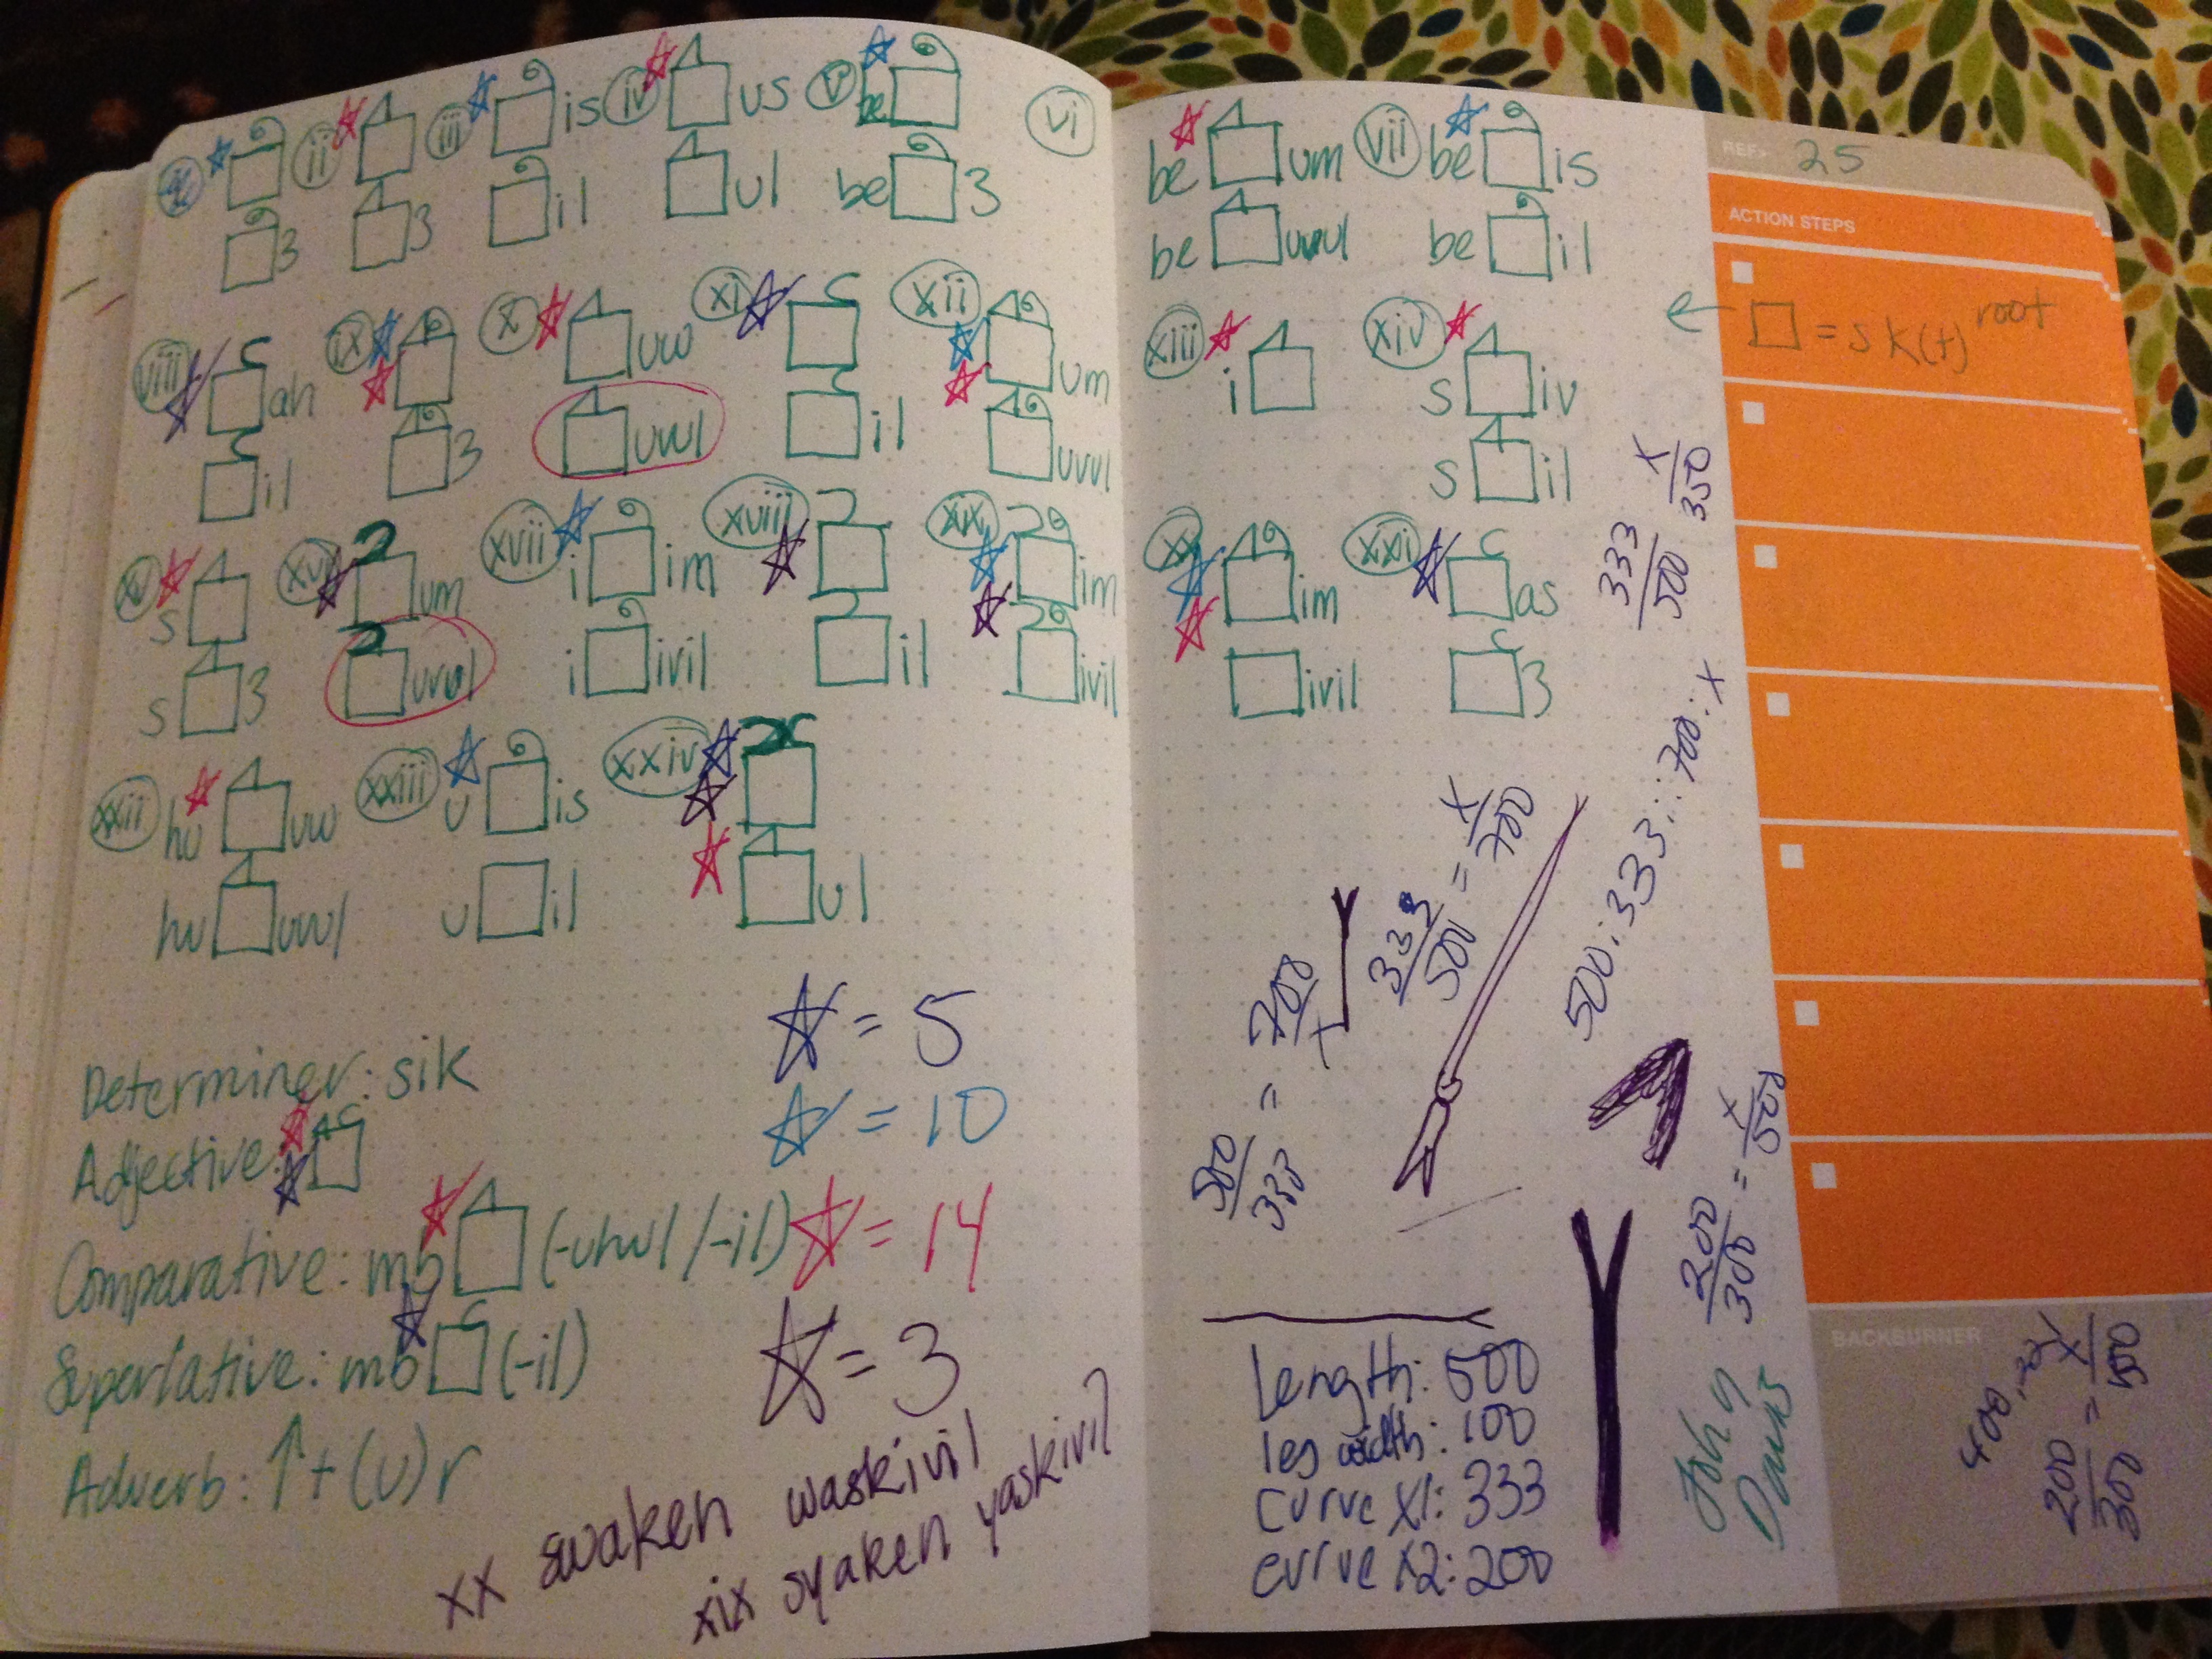 i ii iii is iv us v be vi
3 3 il ul be 3
viii ah ix x uw xi xii um
il 3 uwl il uvul
xv s xvi um xvii i im xviii xix im
s 3 uvul i ivil il ivil
xxii hu uw xxiii u is xxiv
hu uwl u il ul
= 5
Determiner: sik
= 10
Adjective:
Comparative: mb (-uhwl/-il)
= 14
Superlative: mb (-il)
= 3
Adverb: ↑+(u)r
xx swaken waskivil
xix syaken yaskivil
be um vii be is
be uvul be il
xiii i xiv s iv
s il
xx im xxi as
ivil 3
333/500 x/350
500:333::700:x
333/500 = x/700
500/333 = 700/x
200/300 = x/500
length: 500
leg width: 100
curve x1: 333
curve x2: 200
REF> 25
ACTION STEPS
← □ = sk(t) root
BACKBURNER
200/300 =